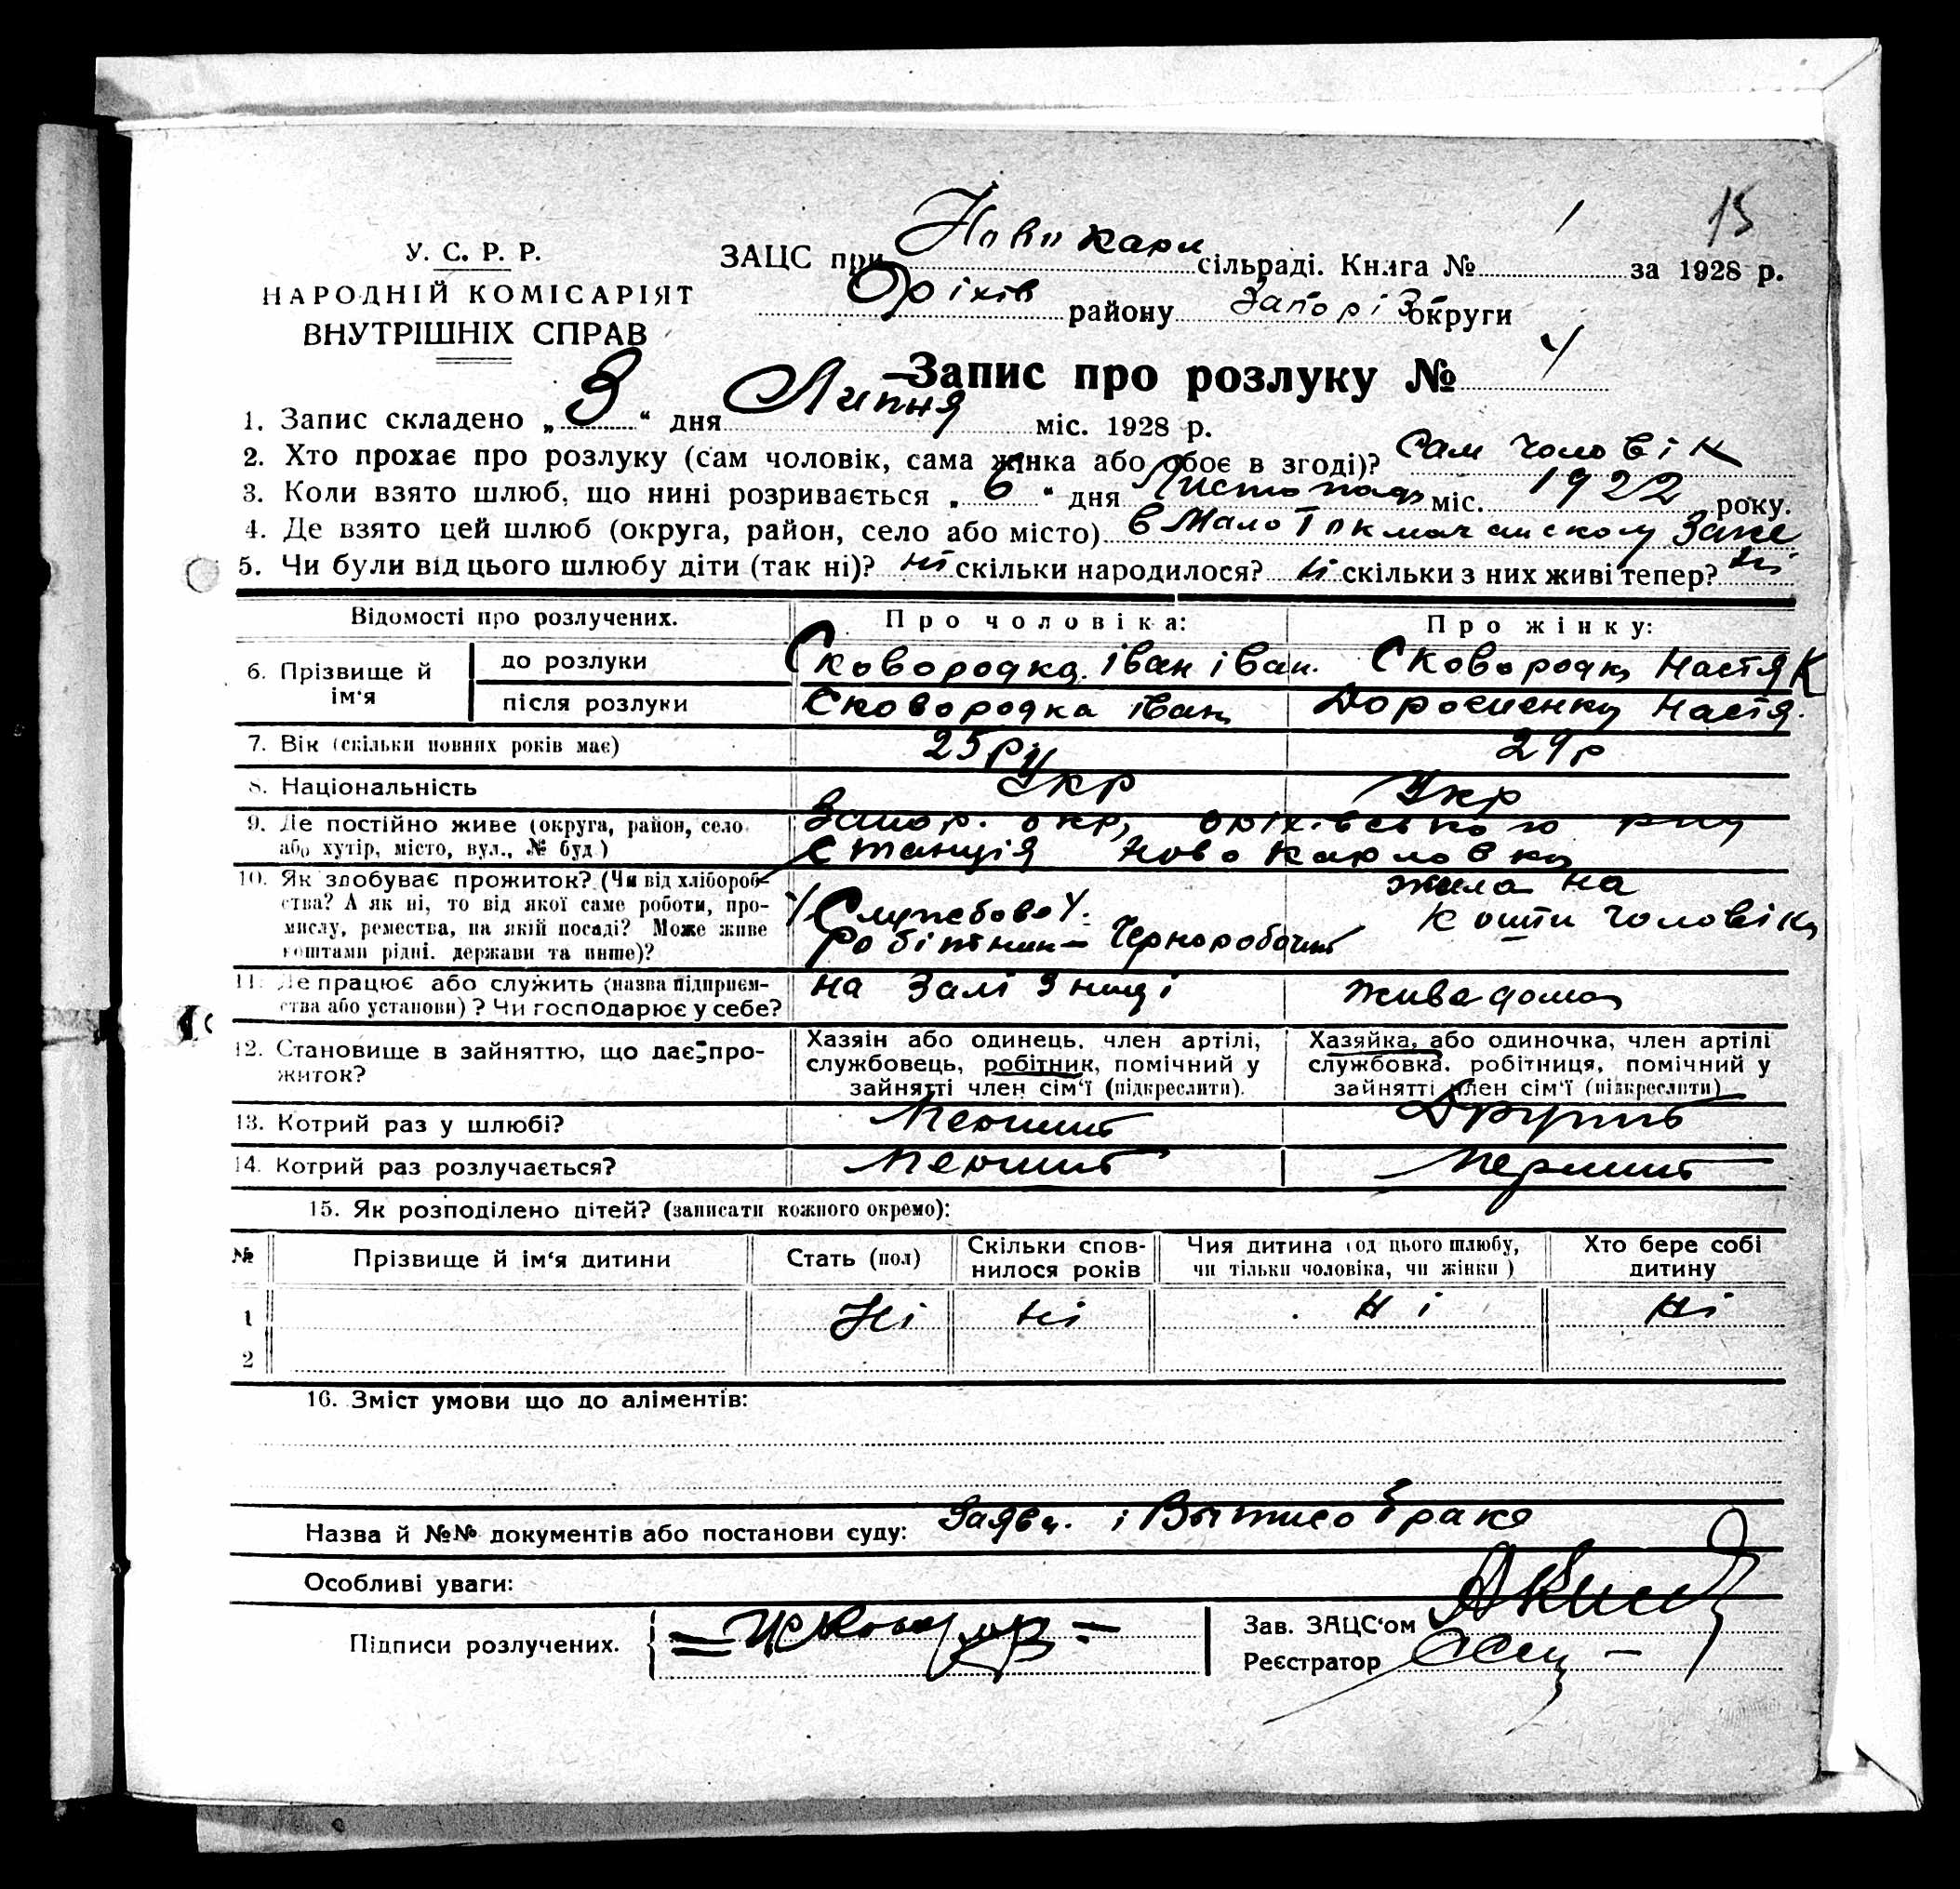 15
У. С. Р. Р.
НАРОДНІЙ КОМІСАРІЯТ
ВНУТРІШНІХ СПРАВ
ЗАЦС при Ново карл сільраді. Книга № 1 за 1928 р.
Оріхів району Запоріз округи
Запис про розлуку № 4
1. Запис складено „3“ дня Липня міс. 1928 р.
2. Хто прохає про розлуку (сам чоловік, сама жінка або обоє в згоді)? Сам Чоловік
3. Коли взято шлюб, що нині розривається „6“ дня Листопад міс. 1922 року.
4. Де взято цей шлюб (округа, район, село або місто) в Мало Токмачанскому
5. Чи були від цього шлюбу діти (так ні)? ні скільки народилося? ні скільки з них живі тепер? ні
Відомості про розлучених. Про чоловіка: Про жінку:
6. Прізвище й ім‘я
до розлуки Сковородка Іван Іван. Сковородка Настя К
після розлуки Сковородка Іван Дорошенко Настя.
7. Вік (скільки повних років має) 25 29р
8. Національність Укр Укр
9. Де постійно живе (округа, район, село або хутір, місто, вул., № буд.) Запор. окр, Оріхівського р-ну
Станція Ново Карловка
10. Як здобуває прожиток? (Чи від хлібороб-
ства? А як ні, то від якої саме роботи, про-
мислу, ремества, на якій посаді? Може живе
коштами рідні, держави та инше)?
Службово
робітник – Черноробочий
жила на
кошти чоловіка
11. Де працює або служить (назва підприєм-
ства або установи)? Чи господарює у себе?
на Залізниці
жива дома
12. Становище в зайняттю, що дає про-
житок?
Хазяін або одинець, член артілі,
службовець, робітник, помічний у
зайнятті член сім‘ї (підкреслити).
Хазяйка, або одиночка, член артілі
службовка, робітниця, помічний у
зайнятті член сім‘ї (підкреслити)
13. Котрий раз у шлюбі? Перший Другий
14. Котрий раз розлучається? Перший Перший
15. Як розподілено дітей? (записати кожного окремо):
№ Прізвище й ім‘я дитини Стать (пол) Скільки спов-
нилося років Чия дитина (од цього шлюбу,
чи тільки чоловіка, чи жінки) Хто бере собі
дитину
1 Ні ні ні ні
2
16. Зміст умови що до аліментів:
Назва й №№ документів або постанови суду: Заява. і
Особливі уваги:
Підписи розлучених.
Зав. ЗАЦС‘ом
Реєстратор